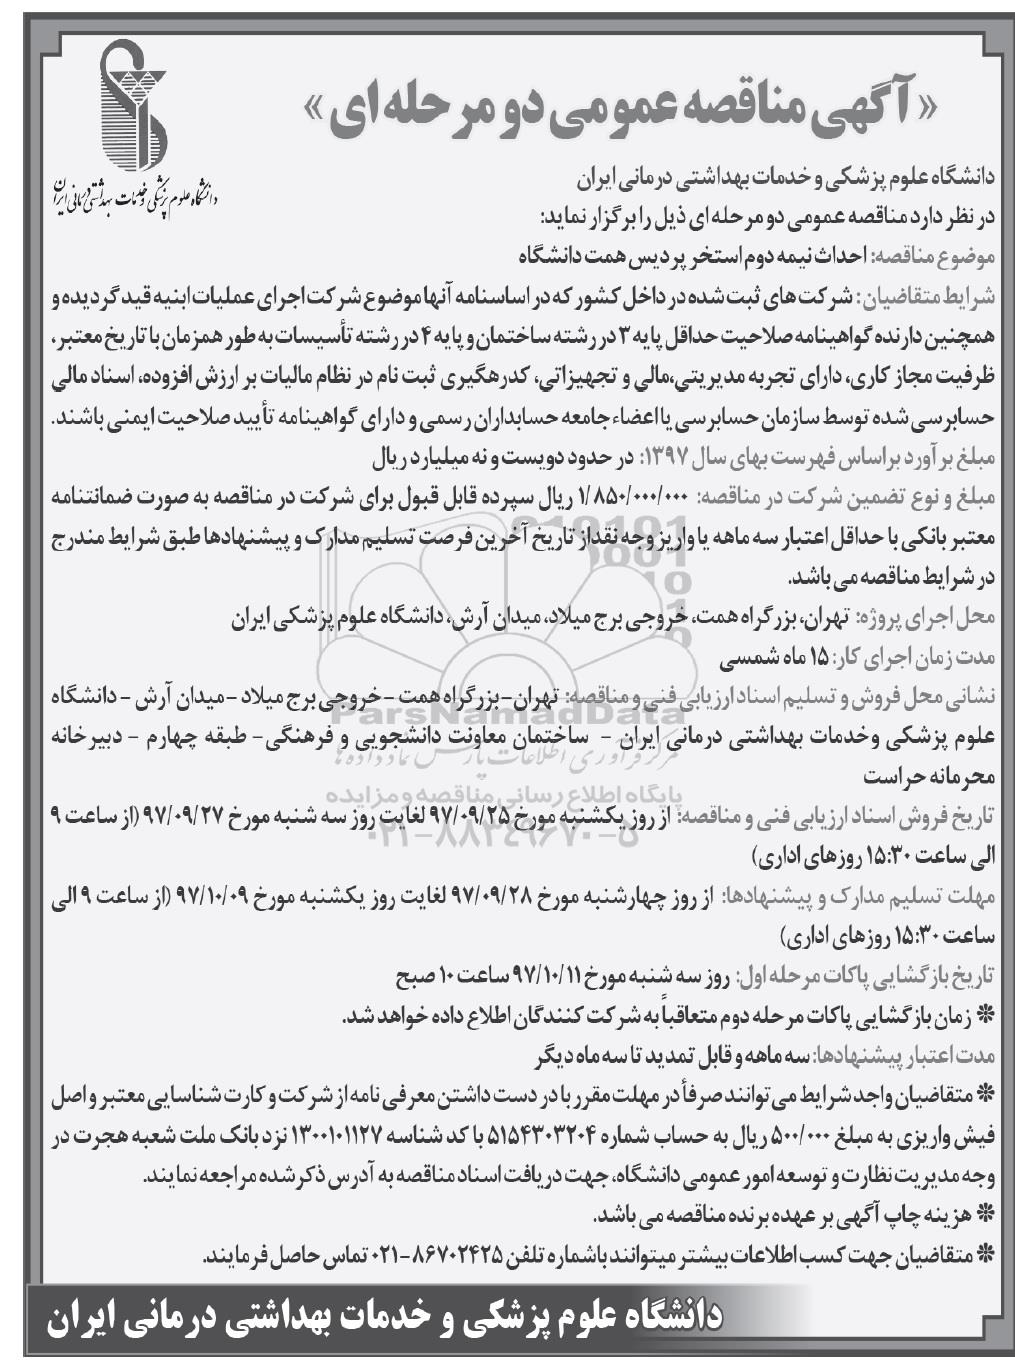 «آگهی مناقصه عمومی دو مرحله ای»
دانشگاه علوم پزشکی و خدمات بهداشتی درمانی ایران
دانشگاه علوم پزشکی و خدمات بهداشتی درمانی ایران
در نظر دارد مناقصه عمومی دو مرحله ای ذیل را برگزار نماید:
موضوع مناقصه: احداث نیمه دوم استخر پردیس همت دانشگاه
شرایط متقاضیان: شرکت های ثبت شده در داخل کشور که در اساسنامه آنها موضوع شرکت اجرای عملیات ابنیه قید گردیده و
همچنین دارنده گواهینامه صلاحیت حداقل پایه ۳ در رشته ساختمان و پایه ۴ در رشته تأسیسات به طور همزمان با تاریخ معتبر،
ظرفیت مجاز کاری، دارای تجربه مدیریتی،مالی و تجهیزاتی، کدرهگیری ثبت نام در نظام مالیات بر ارزش افزوده، اسناد مالی
حسابرسی شده توسط سازمان حسابرسی یا اعضاء جامعه حسابداران رسمی و دارای گواهینامه تأیید صلاحیت ایمنی باشند.
مبلغ برآورد براساس فهرست بهای سال ۱۳۹۷: در حدود دویست و نه میلیارد ریال
مبلغ و نوع تضمین شرکت در مناقصه: ۱/۸۵۰/۰۰۰/۰۰۰ ریال سپرده قابل قبول برای شرکت در مناقصه به صورت ضمانتنامه
معتبر بانکی با حداقل اعتبار سه ماهه یا واریز وجه نقداز تاریخ آخرین فرصت تسلیم مدارک و پیشنهادها طبق شرایط مندرج
در شرایط مناقصه می باشد.
محل اجرای پروژه: تهران، بزرگراه همت، خروجی برج میلاد، میدان آرش، دانشگاه علوم پزشکی ایران
مدت زمان اجرای کار: ۱۵ ماه شمسی
نشانی محل فروش و تسلیم اسناد ارزیابی فنی و مناقصه: تهران- بزرگراه همت - خروجی برج میلاد - میدان آرش - دانشگاه
ParsNamadData
علوم پزشکی وخدمات بهداشتی درمانی ایران - ساختمان معاونت دانشجویی و فرهنگی- طبقه چهارم - دبیرخانه
مرکز فرآوری اطلاعات پارس نماد داده ها
محرمانه حراست
پایگاه اطلاع رسانی مناقصه و مزایده
تاریخ فروش اسناد ارزیابی فنی و مناقصه: از روز یکشنبه مورخ ۹۷/۰۹/۲۵ لغایت روز سه شنبه مورخ ۹۷/۰۹/۲۷ (از ساعت ۹
۰۲۱-۸۸۳۴۹۶۷۰-۵
الی ساعت ۱۵:۳۰ روزهای اداری)
مهلت تسلیم مدارک و پیشنهادها: از روز چهارشنبه مورخ ۹۷/۰۹/۲۸ لغایت روز یکشنبه مورخ ۹۷/۱۰/۰۹ (از ساعت ۹ الی
ساعت ۱۵:۳۰ روزهای اداری)
تاریخ بازگشایی پاکات مرحله اول: روز سه شنبه مورخ ۹۷/۱۰/۱۱ ساعت ۱۰ صبح
* زمان بازگشایی پاکات مرحله دوم متعاقباً به شرکت کنندگان اطلاع داده خواهد شد.
مدت اعتبار پیشنهادها: سه ماهه و قابل تمدید تا سه ماه دیگر
* متقاضیان واجد شرایط می توانند صرفاً در مهلت مقرر با در دست داشتن معرفی نامه از شرکت و کارت شناسایی معتبر و اصل
فیش واریزی به مبلغ ۵۰۰/۰۰۰ ریال به حساب شماره ۵۱۵۴۳۰۳۲۰۴ با کد شناسه ۱۳۰۰۱۰۱۱۲۷ نزد بانک ملت شعبه هجرت در
وجه مدیریت نظارت و توسعه امور عمومی دانشگاه، جهت دریافت اسناد مناقصه به آدرس ذکر شده مراجعه نمایند.
* هزینه چاپ آگهی بر عهده برنده مناقصه می باشد.
* متقاضیان جهت کسب اطلاعات بیشتر میتوانند باشماره تلفن ۸۶۷۰۲۴۲۵-۰۲۱ تماس حاصل فرمایند.
دانشگاه علوم پزشکی و خدمات بهداشتی درمانی ایران